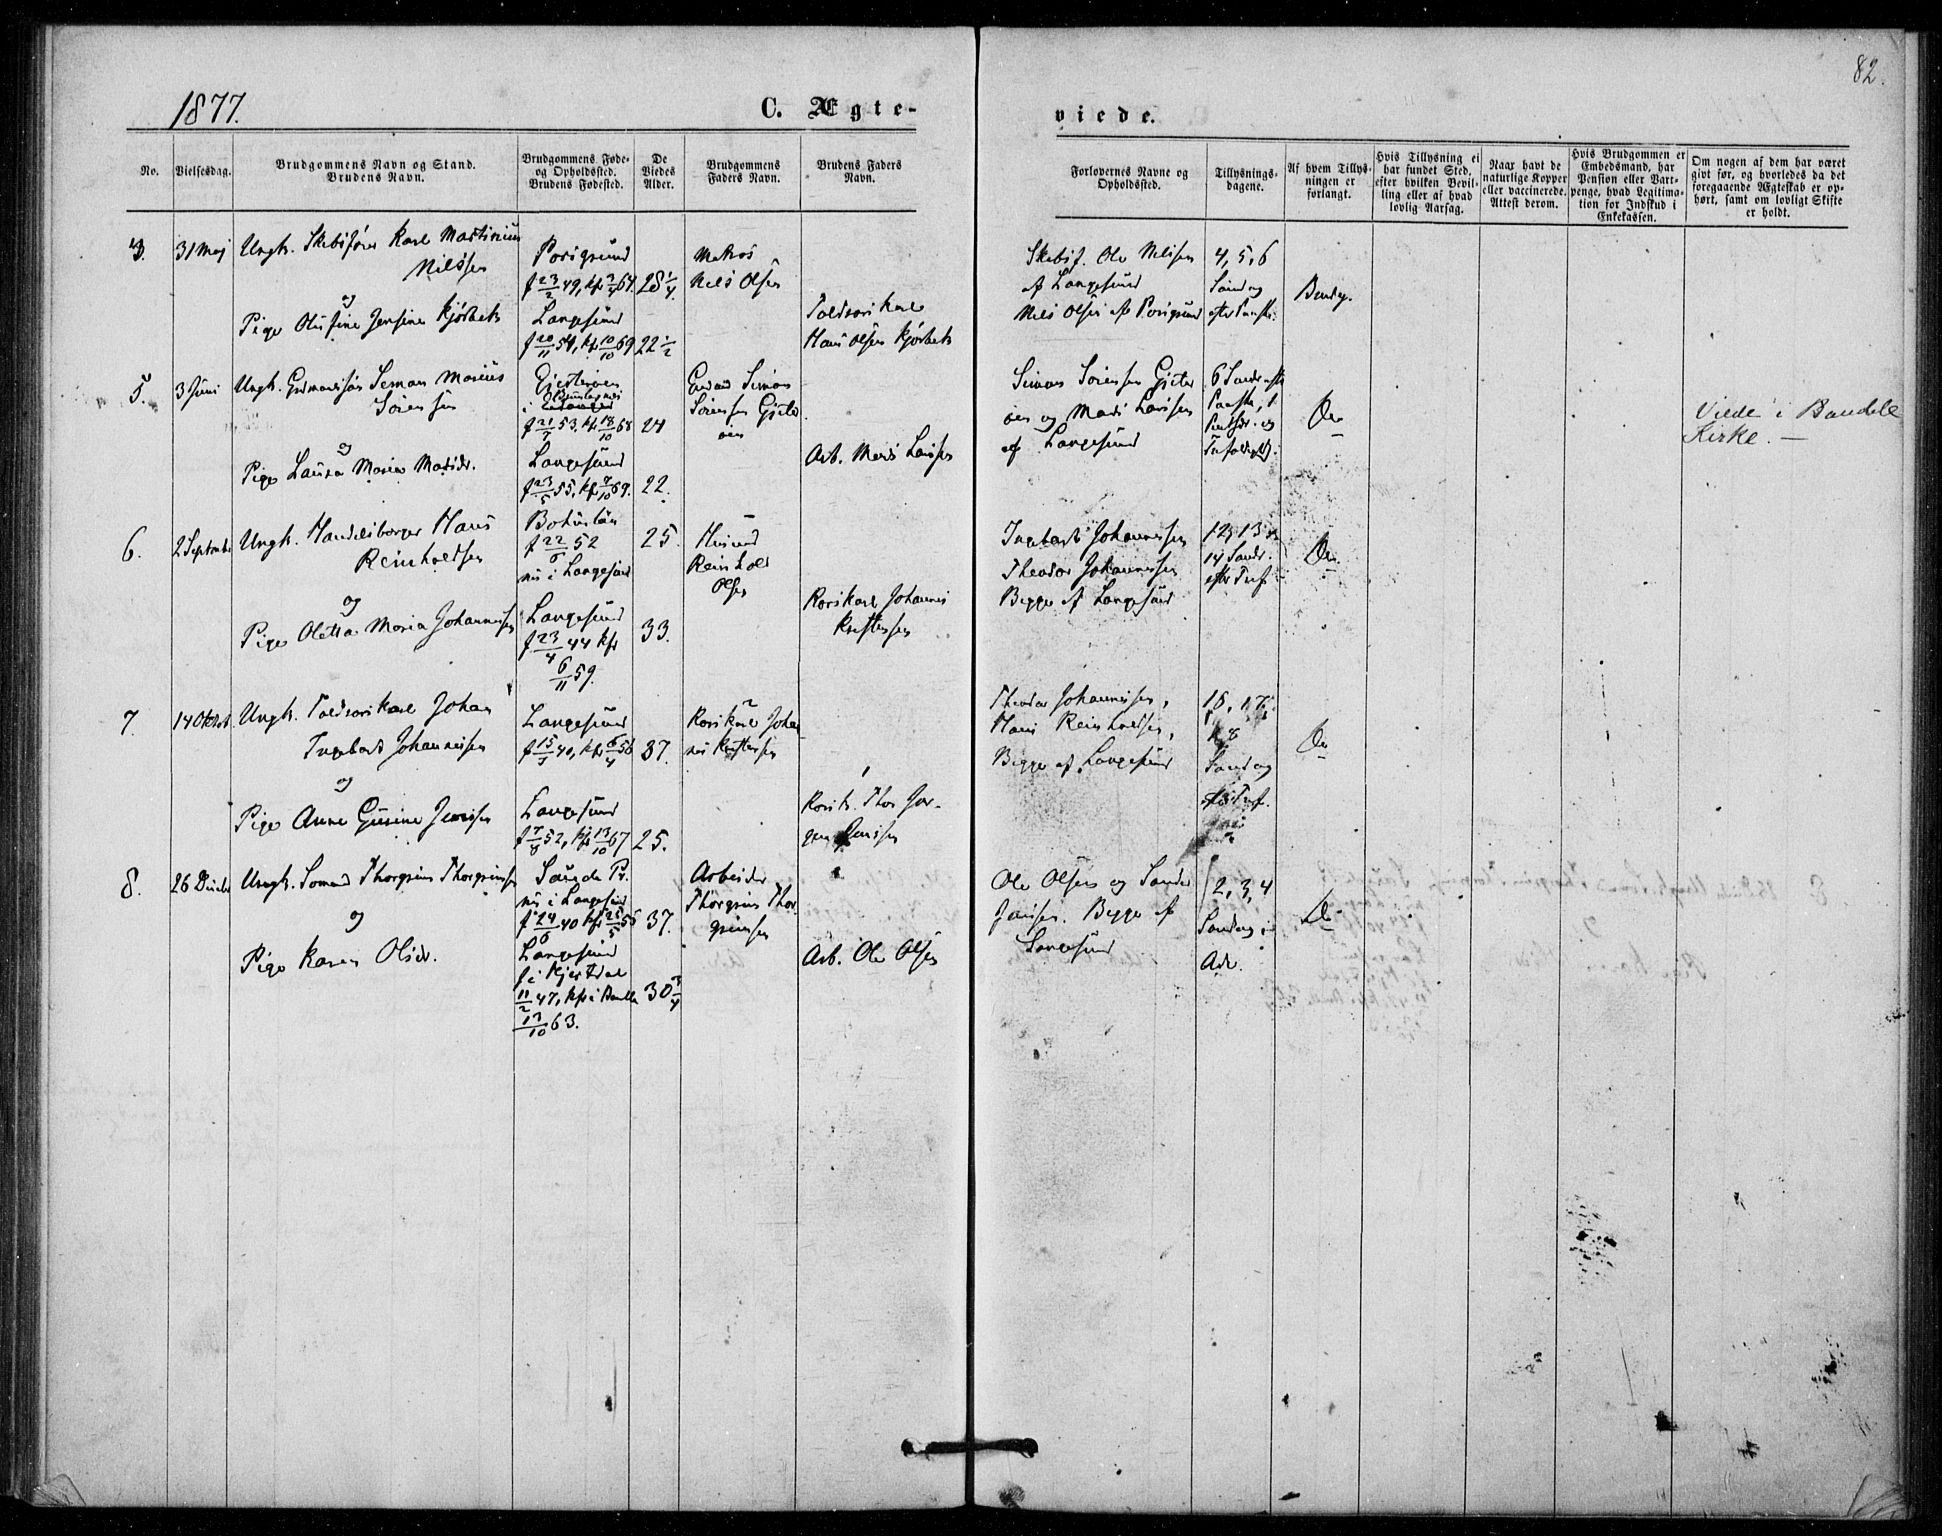 82.
1877.
C. Ægte-
viede.
No.
Vielsesdag.
Brudgommens Navn og Stand.
Brudens Navn.
Brudgommens Føde-
og Opholdssted.
Brudens Fødested.
De
Viedes
Alder.
Brudgommens
Faders Navn.
Brudens Faders
Navn.
Forlovernes Navne og
Opholdssted.
Tillysnings-
dagene.
Af hvem Tillys-
ningen er
forlangt.
Hvis Tillysning ei
har fundet Sted,
efter hvilken Bevil-
ling eller af hvad
lovlig Aarsag.
Naar havt de
naturlige Kopper
eller vaccinerede.
Attest derom.
Hvis Brudgommen er
Embedsmand, har
Pension eller Vart-
penge, hvad Legitima-
tion for Indskud i
Enkekassen.
Om nogen af dem har været
givt før, og hvorledes da det
foregaaende Ægteskab er op-
hørt, samt om lovligt Skifte
er holdt.
31 Maj
Ungk. Skibsfører Karl Martinius
Nilssen
og
Pige Olufine Jensine Kjørbek
Porsgrund
f 23/2 49, kfr 3/4 64.
Langesund
f 20/11 54, kfr 10/10 69
28 1/4.
22 1/2
Matros
Nils Olsen
Toldrorskarl
Hans Olsen Kjørbek
Skibsf. Ole Nilsen
af Langesund
Nils Olsen af Porsgrund
4, 5, 6
Søndag
efter Paaske
Brudg.
5.
3 Juni
Ungk. Simon Marius
Sørensen
og
Pige Laura Maria Madsdr.
Gjeterøen
i
f 21/7 53. kfr 18/10 68
Langesund
f 23/5 55, kfr 7/10 69.
24
22.
Simon
Sørensen Gjeter
øen
Arb. Mads Larsen
Simon Sørensen Gjeter
øen og Mads Larsen
af Langesund
6 Sønd. eft.
Paaske, 1
Pintsd. og
Do
Viede i Bamble
Kirke. —
6.
2 September
Ungk. Handelsborger Hans
Reinholdsen
og
Pige Oletta Maria Johannesen
Bohuslän
f 22/6 52
nu i Langesund
Langesund
f 23/4 44 kfr
6/11 59.
25.
33.
Husmd
Reinhold
Olsen
Rorskarl Johannes
Kristensen
Ingebart Johannesen
Theodor Johannesen
Begge af Langesund
12, 13 &
14 Sønd.
efter Tref.
Do
7.
14 Oktob.
Ungk. Toldrorskarl Johan
Ingebart Johannesen
og
Pige Anne Gurine Jensen
Langesund
f 15/9 40, kfr 6/4 56
Langesund
f 7/8 52, kfr 13/10 67
37.
25.
Rorskarl Johan
nes Kristensen
Rorsk. Thor Jør-
gen Jensen
Theodor Johannesen,
Hans Reinholdsen,
Begge af Langesund
16, 17,
18
Søndag
efter Tref.
Do
8.
26 Decbr
Ungk. Sømand Thorgrim Thorgrimsen
og
Pige Karen Olsdr.
Saude Pr.
nu i Langesund
f 24/6 40 kfr 25/5 56
Langesund
f i Kjerdal
11/2 47, kfr i Bamble
13/10 63.
37.
30 3/4
Arbeider
Thorgrim Thor
grimsen
Arb. Ole Olsen
Ole Olsen og Sander
Jansen. Begge af
Langesund
2, 3, 4
Søndag i
Adv.
Do